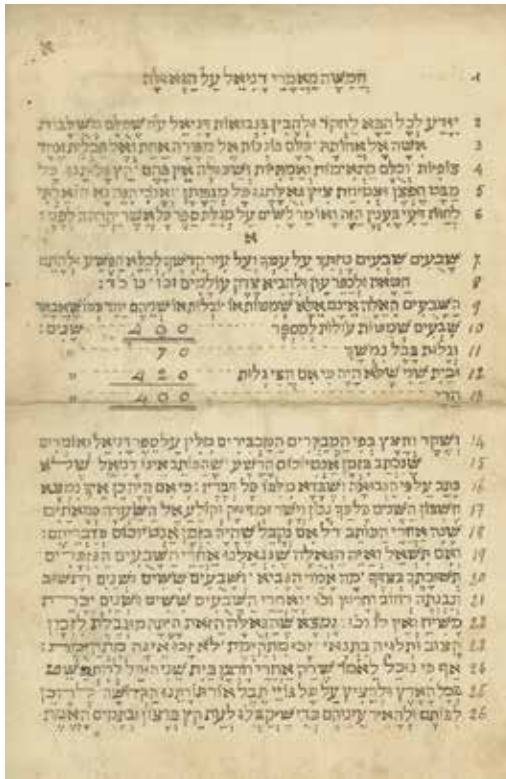 א
1 חמשה מאמרי דניאל על הגאולה
2 יודע לכל הבא לחקר ולהבין בנבואות דניאל שכלם משלבות
3 אשה אל אחותה וכלם פונות אל מטרה אחת ואל תכלית אחד
4 צופיות וכלם מתאימות ואמתיות אין בהם כל
5 מבט החפץ וצמיחת ציץ גאולתנו כל
6 לחות דעי בענין הזה ואומר לשים על מגלת ספר כל אשר
א
7 שבעים שבעים נחתך על עמך ועל עיר קדשך לכלא הפשע ולהתם
8 חטאת ולכפר עון ולהביא צדק עולמים וכו
9 השבעים האלה אינם אלא שמטות או יובלות או שניהם יחד כמו שאבאר
10 שבעים שמטות עולות למספר 490 שנים:
11 וגלות בבל נמשך 70 "
12 ובית שני שלא היה כי אם חצי גלות 420 "
13 הרי 490 "
14 ושקר וחצץ בפי המבקרים המכבירים מלין על ספר דניאל ואומרים
15 שנכתב בזמן אנטיוכוס הרשע שהכותב איננו דניאל
16 כתב על פי הנבואה ושבדא מלבו כל דבריו: כי אם היתכן איך נמצא
17 חשבון השנים כל כך נכון וישר ומדויק וקולע אל השערה כמאתים
18 שנה אחרי הכותב אם נקבל שהיה בזמן אנטיוכוס כדבריהם:
19 ואם תשאל ואיזה הגאולה שנגאלנו אחרי השבעים הנזכרים
20 תשובתך בצדך כמה אמר הנביא ושבעים ששים ושנים תשוב
21 ונבנתה רחוב וחרוץ וכו ואחרי השבעים ששים ושנים יכרת
22 משיח ואין לו וכו: נמצא שהגאולה הזאת היתה מוגבלת לזמן
23 קצוב ותלויה בתנאי זכו מתקימת לא זכו אינה מתקימת:
24 אף כי נוכל לאמר שרק אחרי חרבן בית שני החל להתפשט
25 בכל הארץ ולהציץ על כל גויי תבל אור תורתנו הקדושה
26 לבותם ולהאיר עיניהם כדי שיקבלו לעת הקץ ברצון ובתמים האמת